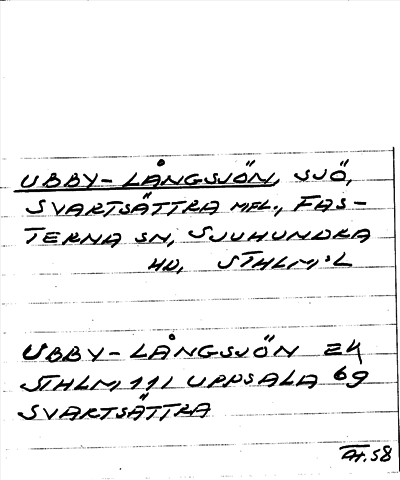 UBBY-LÅNGSJÖN, SJÖ,
SVARTSÄTTRA MFL., FAS-
TERNA SN, SJUHUNDRA
HD, STHLM:L
UBBY-LÅNGSJÖN EK
STHLM 111 UPPSALA 69
SVARTSÄTTRA
58